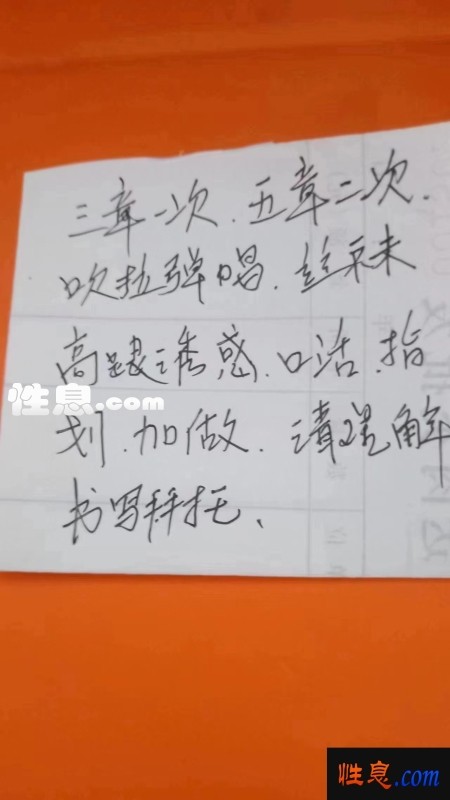 三章一次、五章二次、
吹拉弹唱、丝袜
高跟诱惑、口活、指
划、加做、请理解
书写拜托、
性息.com
性息.com